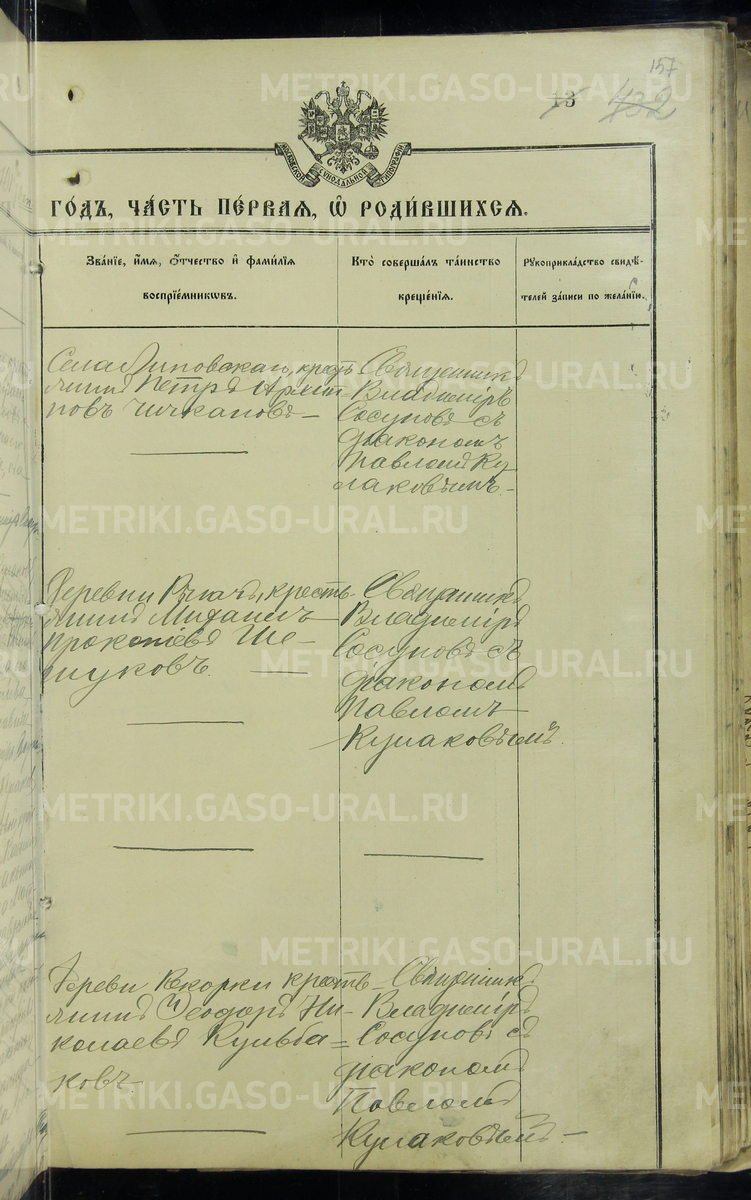 157
13 432
МОСКОВСКОЙ СѴНОДАЛЬНОЙ ТИПОГРАФІИ
ГО́ДЪ, ЧА́СТЬ ПЕ́РВАЯ, Ѽ РОДИ́ВШИХСЯ.
Зва́нїе, и҆́мя, ѻ҆́тчество и҆ фами́лїя
воспрїе́мникѡвъ.
Кто̀ соверша́лъ та́инство
креще́нїя.
Рꙋкоприкла́дство свидѣ́-
телей за́писи по жела́нїю.
Села Липовскаго, кресть
янинъ Петръ
повъ Чичкановъ —
Священникъ
Владиміръ
Сосуновъ съ
діакономъ
Павломъ Ку
лаковымъ —
Деревни кресть-
янинъ Михаилъ
Прокопіевъ Ше-
шуковъ. —
Священникъ
Владиміръ
Сосуновъ съ
діакономъ
Павломъ
Кулаковымъ.
Деревни крестья-
нинъ Ѳеодоръ Ни-
колаевъ Кульба=
ковъ
Священникъ
Владиміръ
Сосуновъ съ
діакономъ
Павломъ
Кулаковымъ. —
METRIKI.GASO-URAL.RU